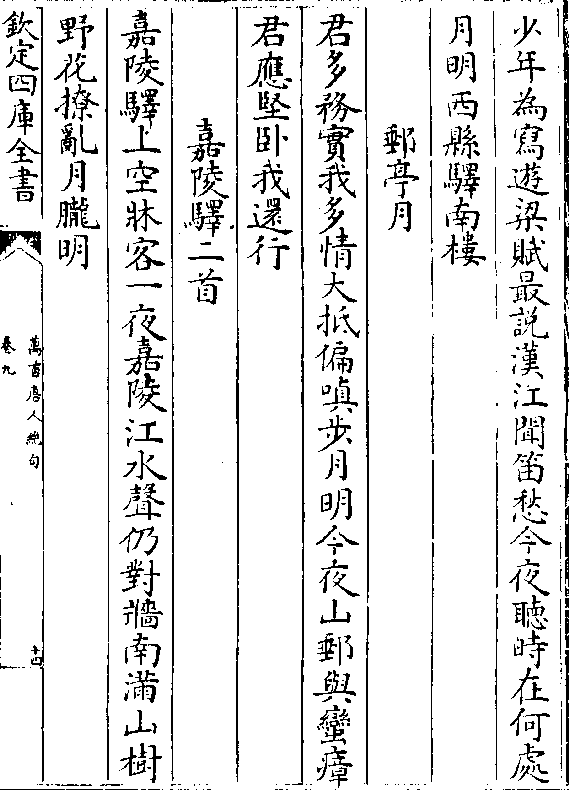 少年為寫遊梁賦最說漢江聞笛愁今夜聽時在何處
月明西縣驛南樓
郵亭月
君多務實我多情大抵偏嗔步月明今夜山郵與蠻瘴
君應堅卧我還行
嘉陵驛二首
嘉陵驛上空牀客一夜嘉陵江水聲仍對牆南滿山樹
野花撩亂月朧明
欽定四庫全書
萬首唐人絶句
卷九
十四